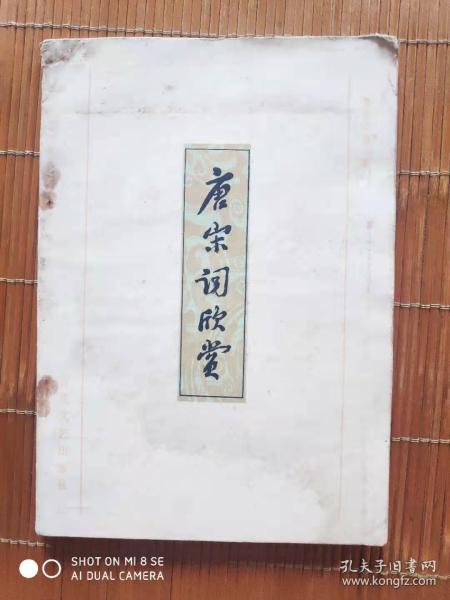 唐宋词欣赏
文艺出版社
SHOT ON MI 8 SE
AI DUAL CAMERA
孔夫子旧书网
www.kongfz.com